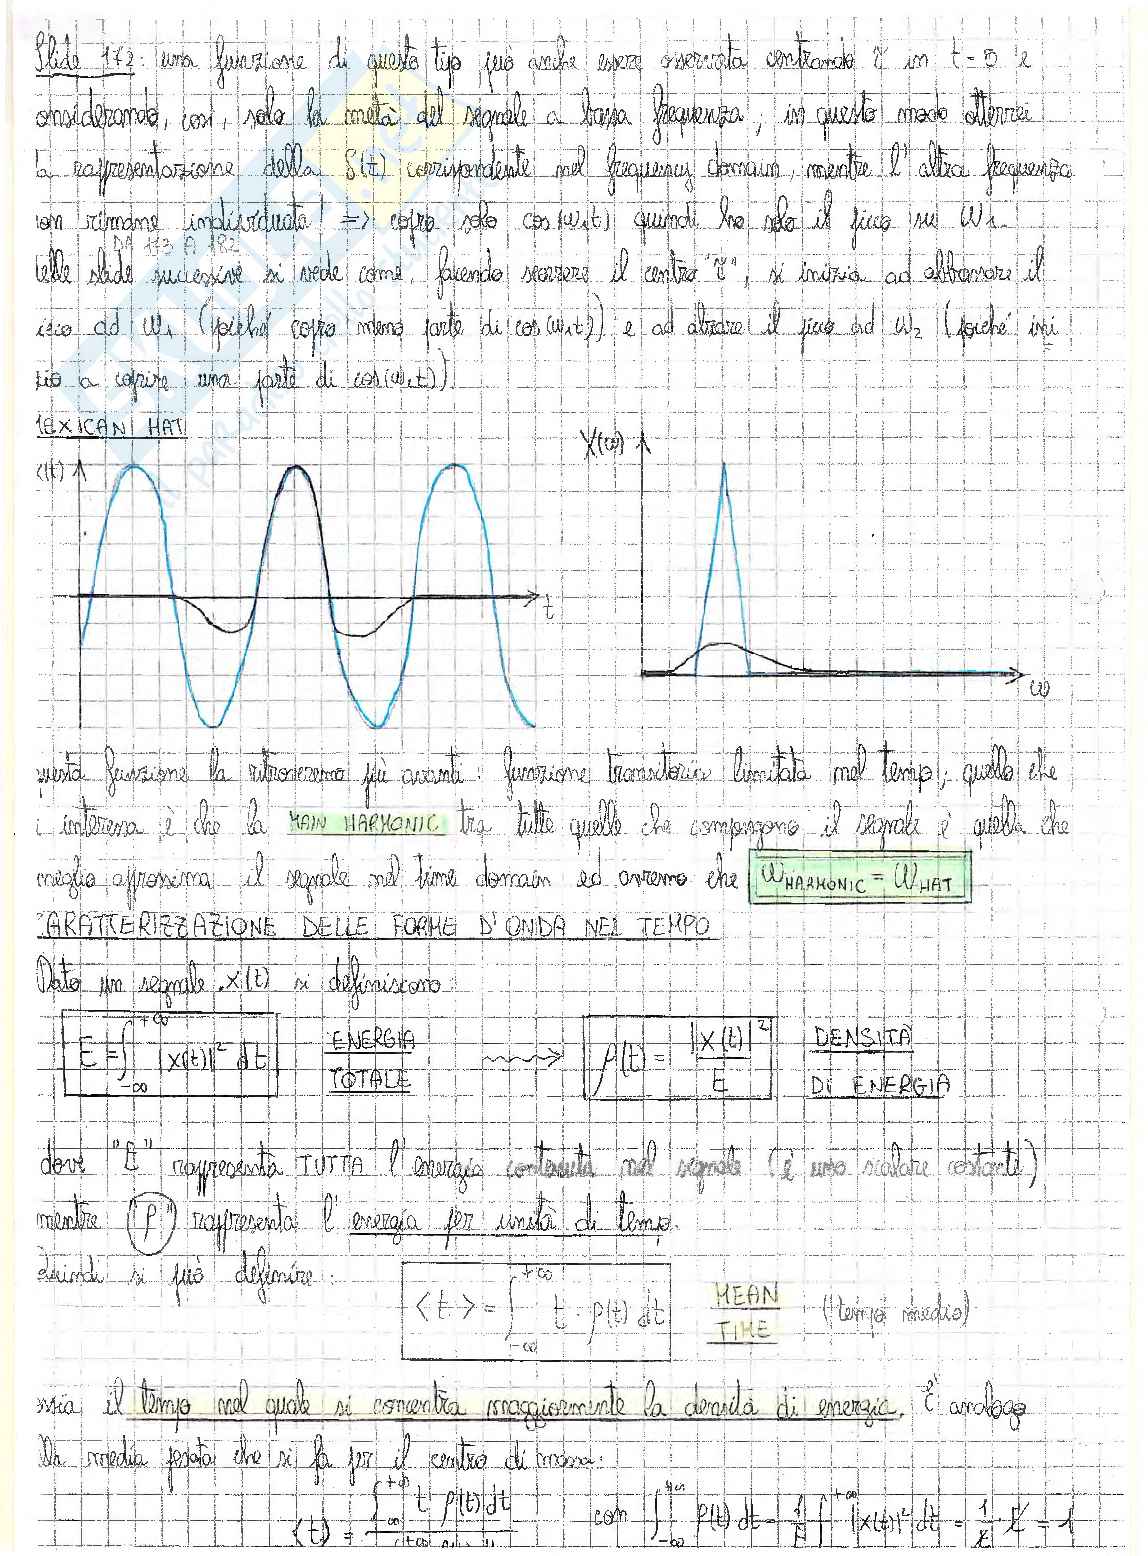 Slide 172: una funzione di questo tipo può anche essere osservata centrando τ in t=5 e
onsiderando, così, solo la metà del segnale a bassa frequenza; in questo modo otterrei
la rappresentazione della S(t) corrispondente nel frequency domain, mentre l'altra frequenza
on rimane individuata! => copro solo cos(ω₁t) quindi ho solo il picco su ω₁.
DA 173 A 182
elle slide successive si vede come, facendo scorrere il centro "τ", si inizia ad abbassare il
icco ad ω₁ (poiché copro meno parte di cos(ω₁t)) e ad alzare il picco ad ω₂ (poiché ini
zio a coprire una parte di cos(ω₂t)).
MEXICAN HAT
x(t)
t
X(ω)
ω
questa funzione la ritroveremo più avanti: funzione transitoria limitata nel tempo; quello che
i interessa è che la MAIN HARMONIC tra tutte quelle che compongono il segnale è quella che
meglio approssima il segnale nel time domain ed avremo che ω HARMONIC = ω HAT
CARATTERIZZAZIONE DELLE FORME D'ONDA NEL TEMPO
Dato un segnale x(t) si definiscono:
E = ∫_{-∞}^{+∞} |x(t)|² dt ENERGIA TOTALE ⇝ ρ(t) = |x(t)|²/E DENSITÀ DI ENERGIA
dove "E" rappresenta TUTTA l'energia contenuta nel segnale (è uno scalare costante)
mentre "ρ" rappresenta l'energia per unità di tempo.
Quindi si può definire:
<t> = ∫_{-∞}^{+∞} t · ρ(t) dt MEAN TIME (tempo medio)
ssia il tempo nel quale si concentra maggiormente la densità di energia. È analogo
lla media pesata che si fa per il centro di massa:
<t> = ∫_{-∞}^{+∞} t ρ(t) dt con ∫_{-∞}^{+∞} ρ(t) dt = 1/E ∫_{-∞}^{+∞} |x(t)|² dt = 1/E · E = 1